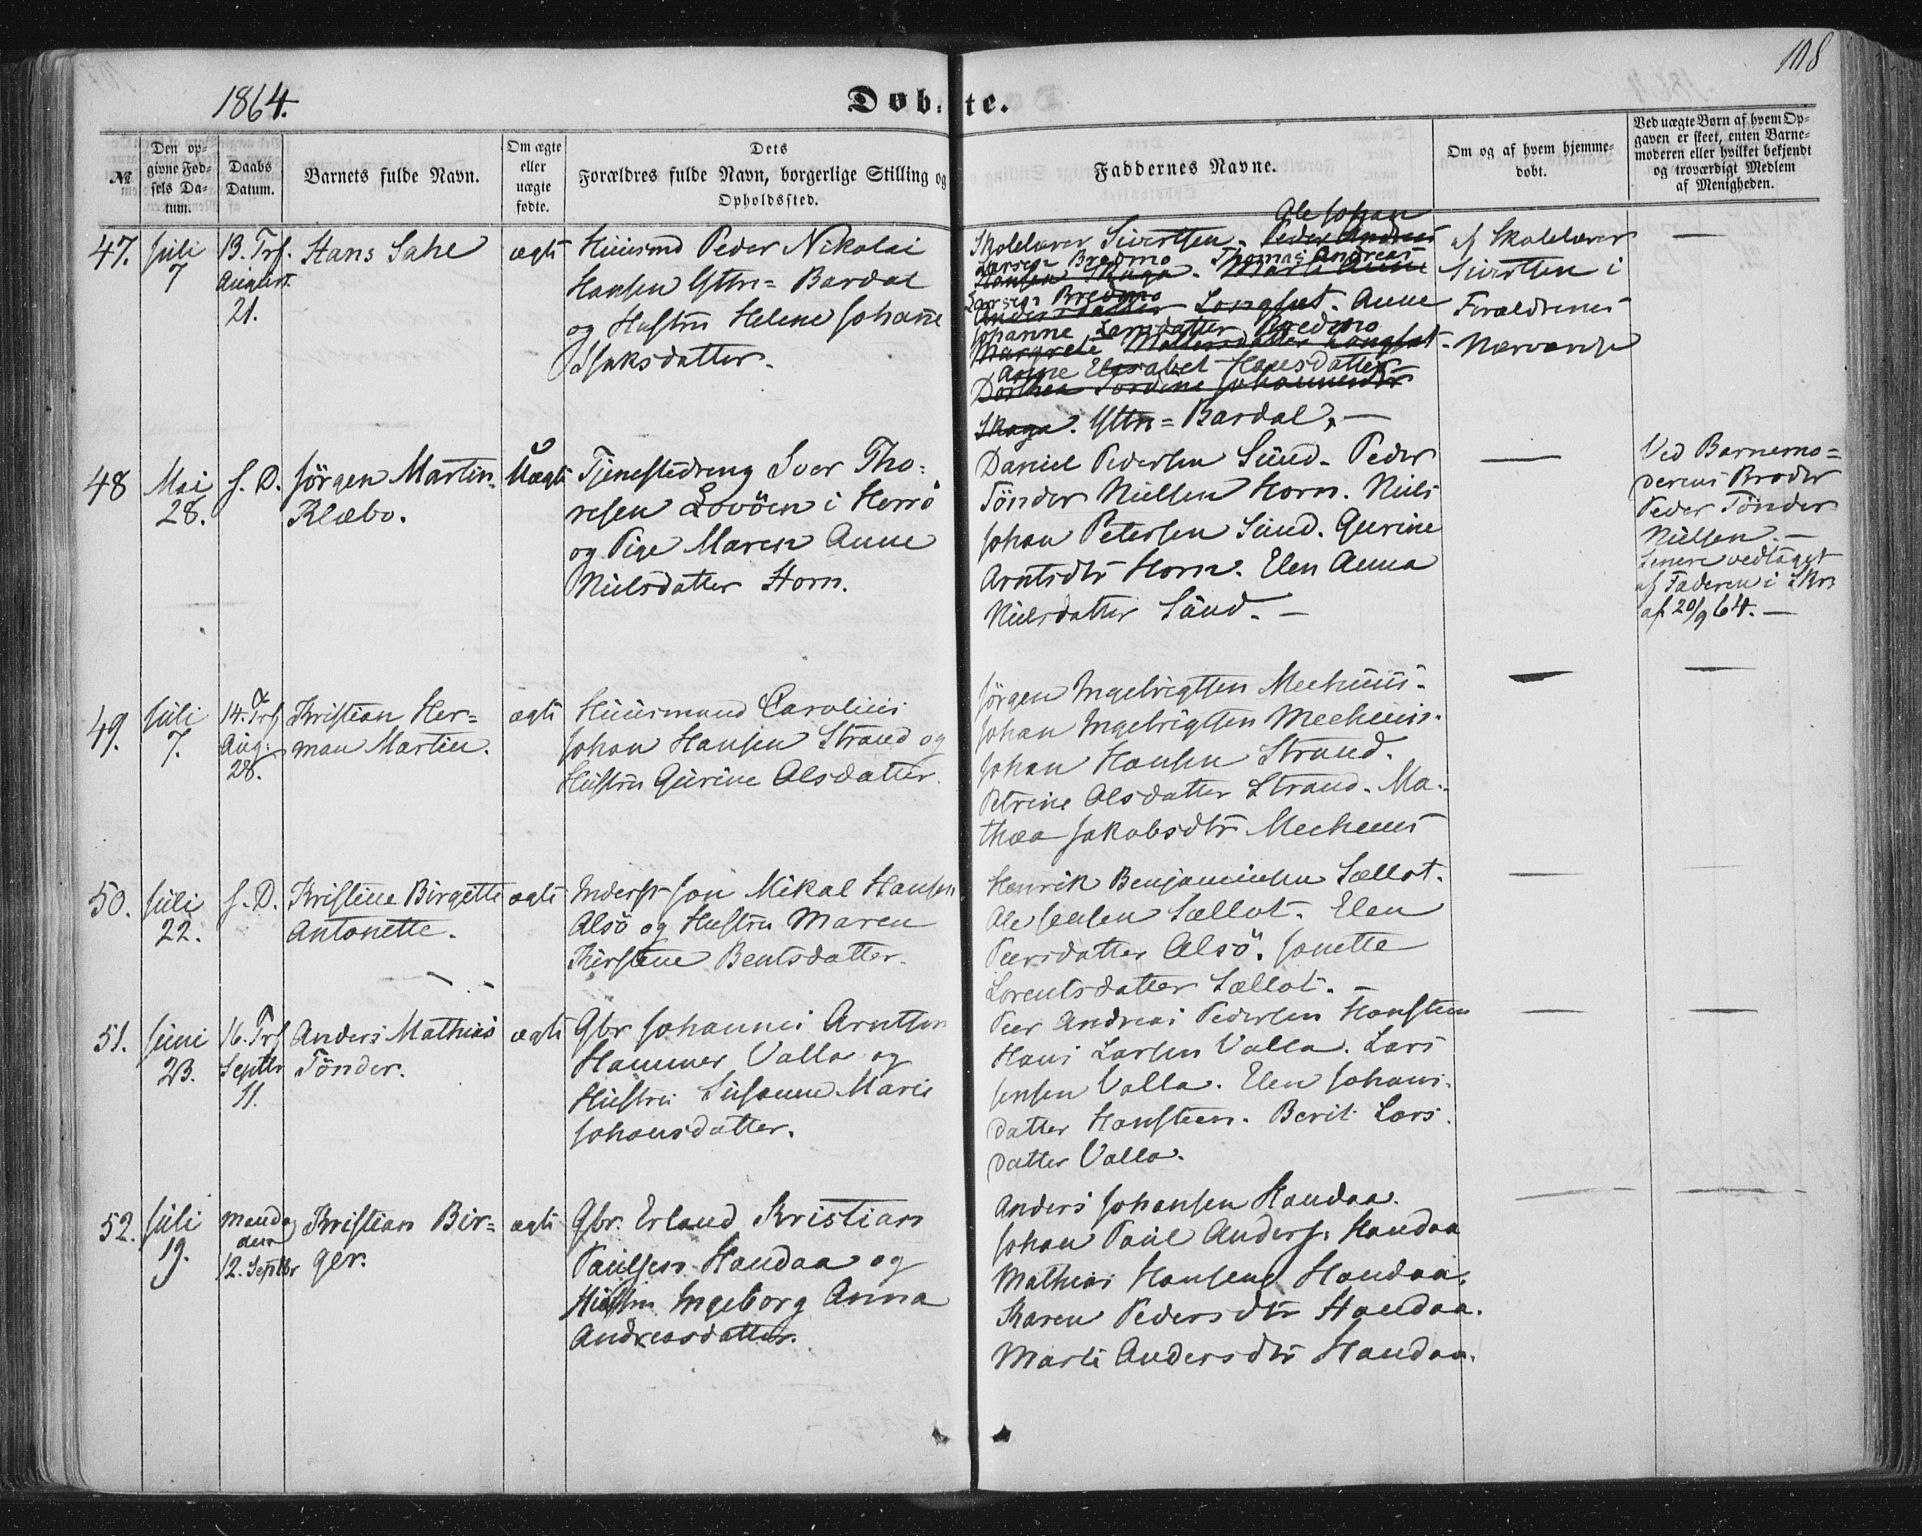 1864.
Døbte.
108
№
Den op-
givne Fød-
sels Da-
tum.
Daabs
Datum.
Barnets fulde Navn.
Om ægte
eller
uægte
fødte.
Dets
Forældres fulde Navn, borgerlige Stilling og
Opholdssted.
Faddernes Navne.
Om og af hvem hjemme-
døbt.
Ved uægte Børn af hvem Op-
gaven er skeet, enten Barne-
moderen eller hvilket bekjendt
og troværdigt Medlem
af Menigheden.
47.
Juli
7
13. Trf.
August
21.
Hans Sahe
ægte
Huusmd Peder Nikolai
Hansen Yttre= Bardal
og Hustru Helene Johanne
Isaksdatter.
Ole Johan
Skolelærer Sivertsen. Peder Andreas
Larsen Bredmo Thomas Andreas
Hansen Skaga. Marte Anne
Larsen Bredmo
Andersdatter Langset. Anne
Johanne Larsdatter Bredmo
Margrete Mattisdatter Langset.
Anne Elisabet Hansdatter
Dorthea Jordine Johannesdtr
Skaga. Yttre= Bardal. —
af Skolelærer
Sivertsen i
Forældrenes
Nærværelse
—
48
Mai
28.
s. D.
Jörgen Martin
Klæbo.
Uægte
Tjenestedreng Iver Tho=
resen Lovöen i Herrö
og Pige Maren Anne
Nielsdatter Horn.
Daniel Pedersen Sund. Peder
Tönder Nielsen Horn. Niels
Johan Petersen Sund. Gurine
Arntsdtr Horn. Elen Anna
Nielsdatter Sund. —
—
Ved Barnemo=
derens Broder
Peder Tönder
Nielsen. —
Senere vedtaget
af Faderen i Skr.
af 20/9 64. —
49.
Juli
7.
14. Trf
Aug:
28.
Kristian Her=
man Martin.
ægte
Huusmand Carolius
Johan Hansen Strand og
Hustru Gurine Olsdatter.
Jörgen Ingebrigtsen Meehuus.
Johan Ingebrigtsen Meehuus.
Johan Hansen Strand.
Petrine Olsdatter Strand. Ma-
thea Jakobsdtr Meehuus
—
—
50.
Juli
22.
s. D.
Kristine Birgitte
Antonette.
ægte
Inderst Jon Mikal Hansen
Alsö og Hustru Maren
Kirstine Bentsdatter.
Henrik Benjaminsen Sællot.
Ole Jensen Sællot. Elen
Peersdatter Alsö. Jonette
Lorentsdatter Sællot. —
—
51.
Juni
23.
16. Trf
Septbr
11.
Anders Mathias
Tönder.
ægte
Gbr Johannes Arntsen
Hammer Valla og
Hustru Susanne Marie
Johansdatter.
Peer Andreas Pedersen Hansteen
Hans Larsen Valla. Lars
Jensen Valla. Elen Johans-
datter Hansteen. Berit Lars-
datter Valla.
—
—
52.
Juli
19.
Manda
den
12. Septbr
Kristian Bir=
ger.
ægte
Gbr. Erland Kristian
Paulsen Handaa og
Hustru Ingeborg Anna
Andreasdatter.
Anders Johansen Handaa.
Johan Paul Anders: Handaa
Mathias Hansen Handaa.
Karen Pedersdtr Handaa.
Marte Andersdtr Handaa.
—
—